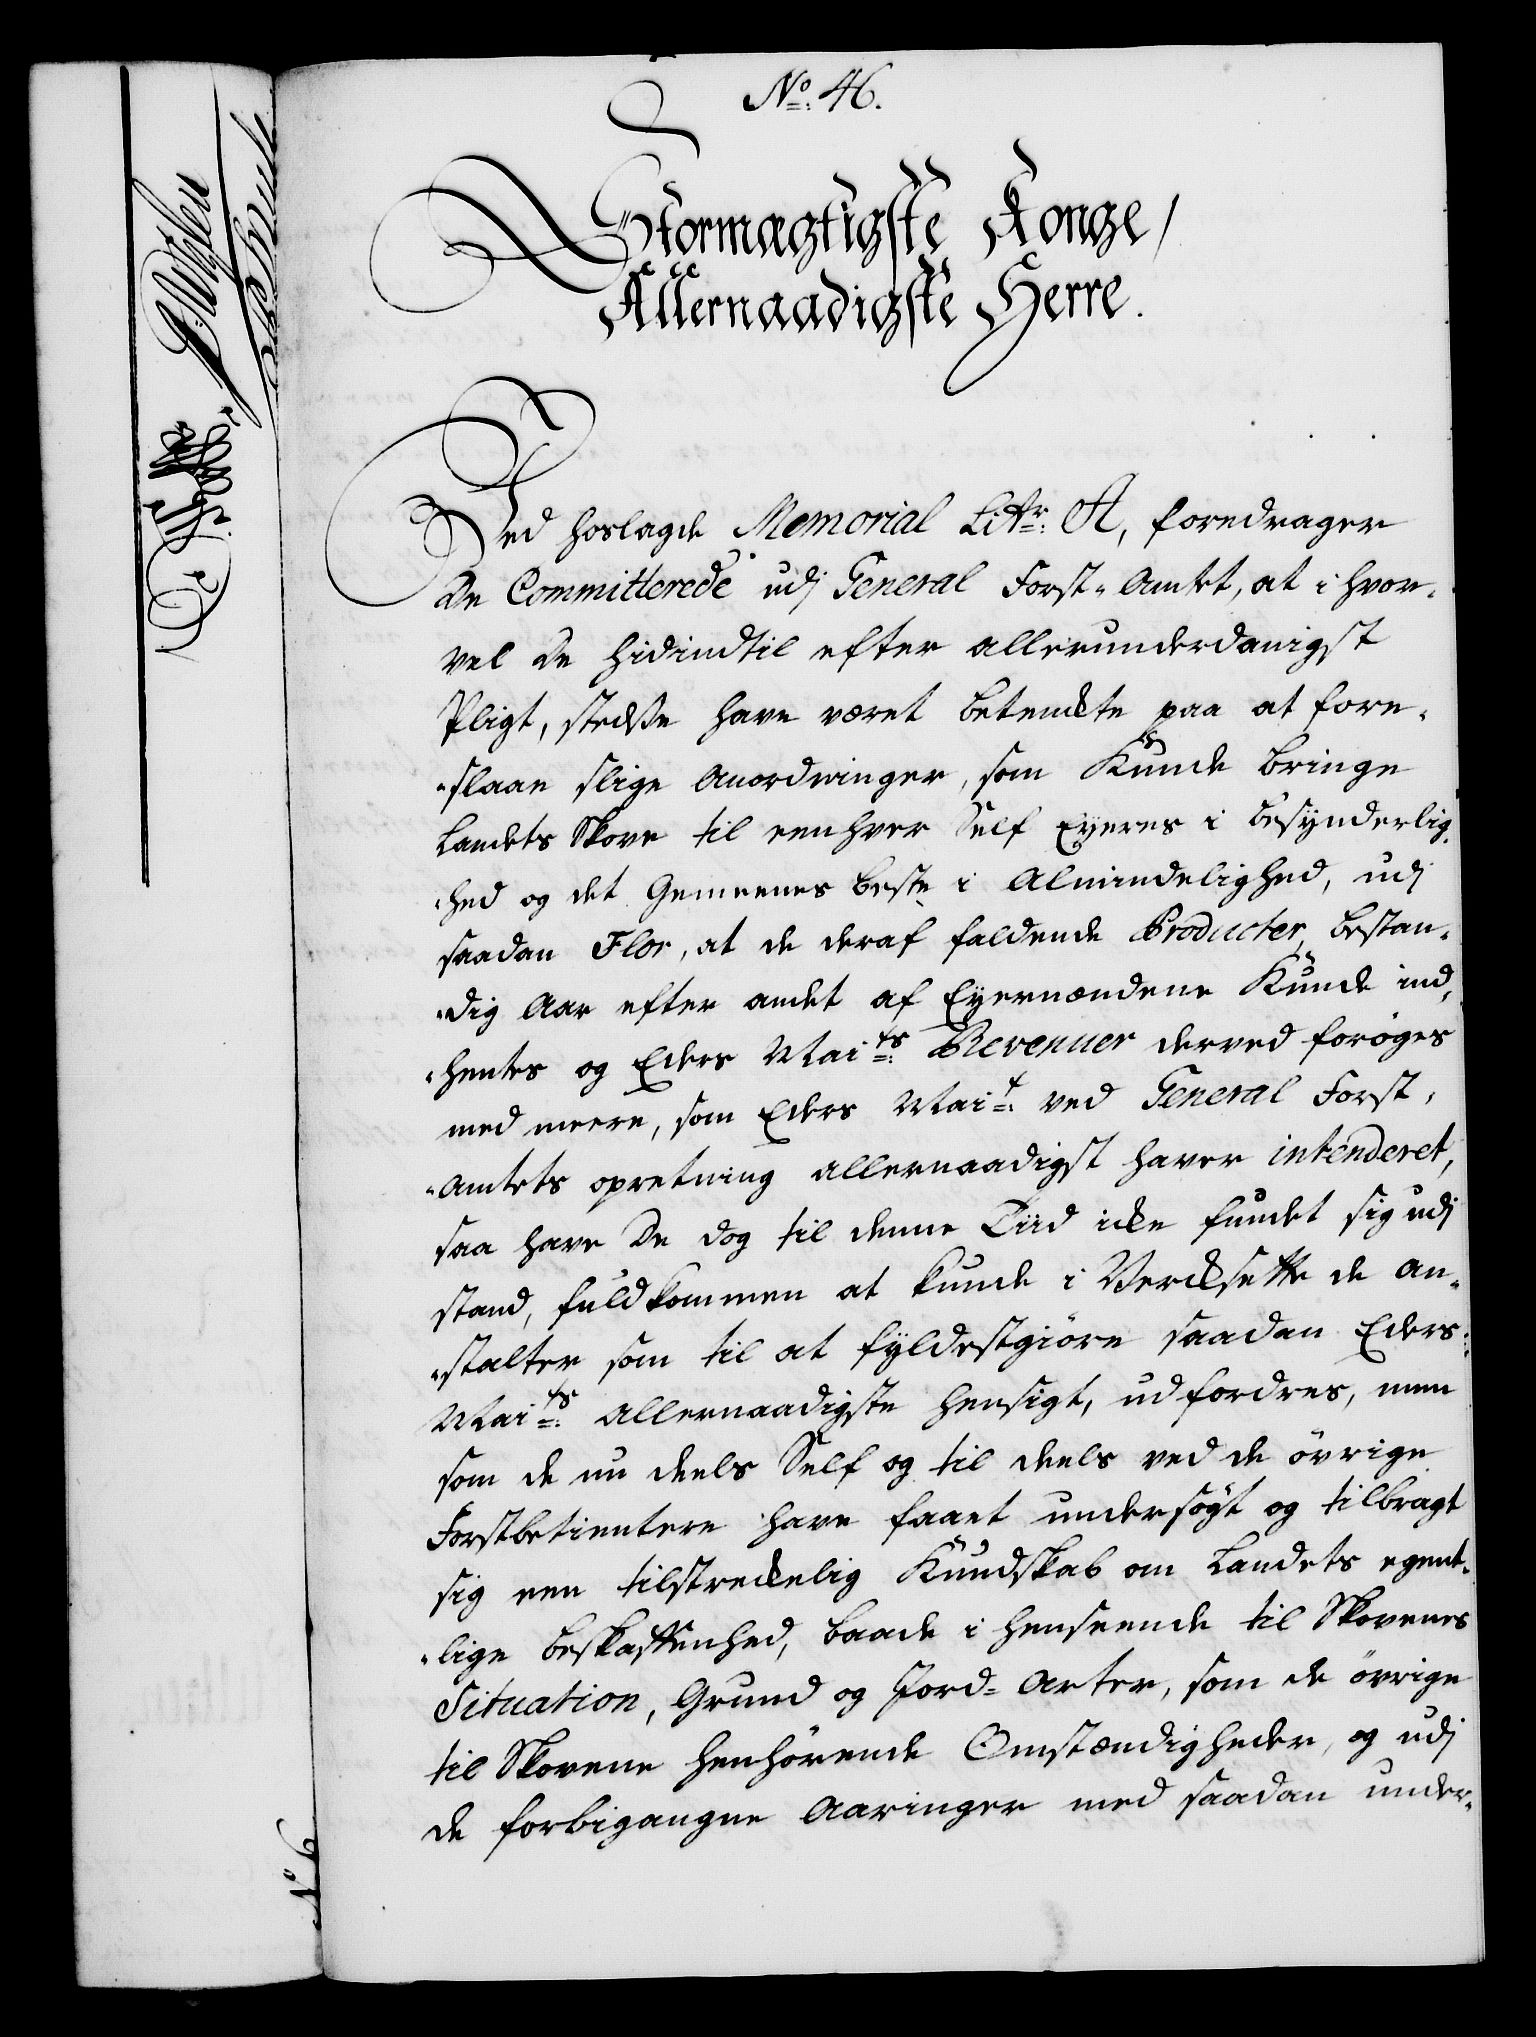 No: 46.
Stormægtigste Konge/
Allernaadigste Herre.
Ved hoslagde Memorial Littr: A, foredrager
De Committerede udj General Forst-Amtet, at i hvor-
vel De hidindtil efter allerunderdanigst
Pligt, stedsse have været betenckte paa at fore-
-slaae slige Anordninger, som Kunde bringe
Landets Skove til eenhver Self Eyeres i besynderlig-
-hed og det Gemeenes beste i Almindelighed, udj
saadan Flor, at de deraf faldende Producter, bestan-
-dig Aar efter andet af Eyermændene Kunde ind-
-hentes og Eders Maits: Revenuer derved forøges
med meere, som Eders Mait: ved General Forst-
-Amtets opretning allernaadigst haver intenderet,
saa have De dog til denne Tiid icke fundet sig udj
stand, fuldkommen at kunde i Vercksætte de An-
-stalter som til at fyldestgiöre saadan Eders
Maits: allernaadigste hensigt, udfordres, men
som de nu deels Self og til deels ved de övrige
Forstbetientere have faaet undersögt og tilbragt
sig een tilstreckelig Kundskab om Landets egent-
-lige beskaffenhed, baade i henseende til Skovenes
Situation, Grund og Jord-Arter, som de övrige
til Skovene henhörende Omstændigheder, og udj
de forbigangne Aaringer med saadan under-
No 6